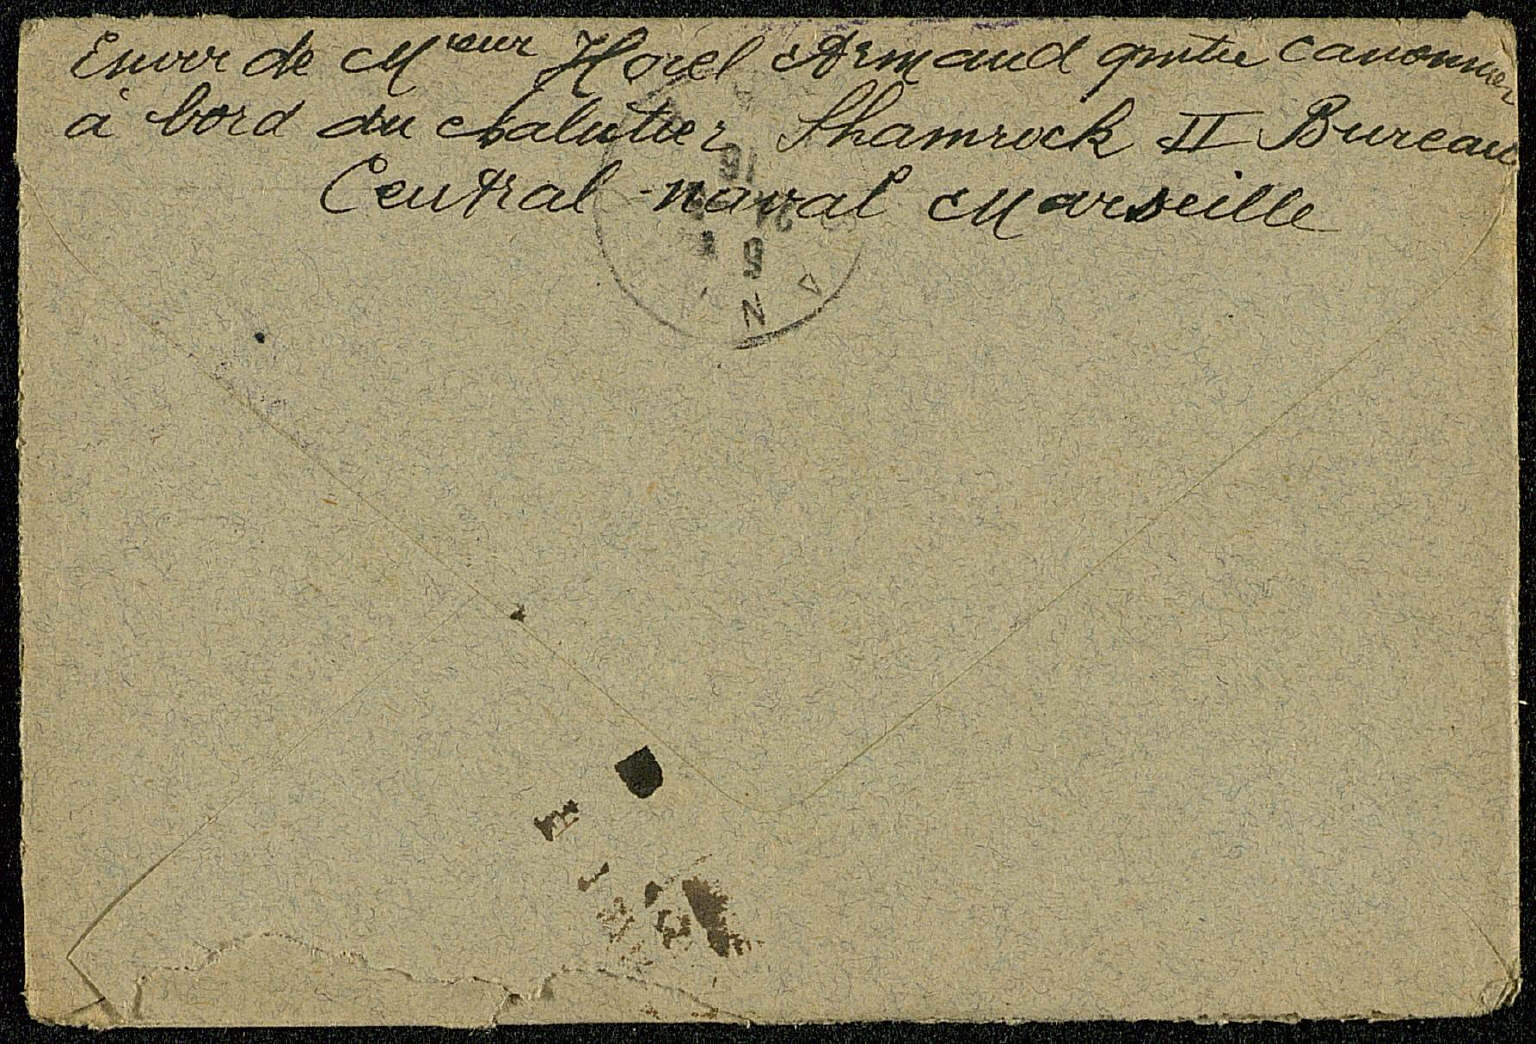 Envoi de Mieur Horel Armand qmtre canonnier
à bord du chalutier Shamrock II Bureau
Central naval Marseille
16
24
5
N